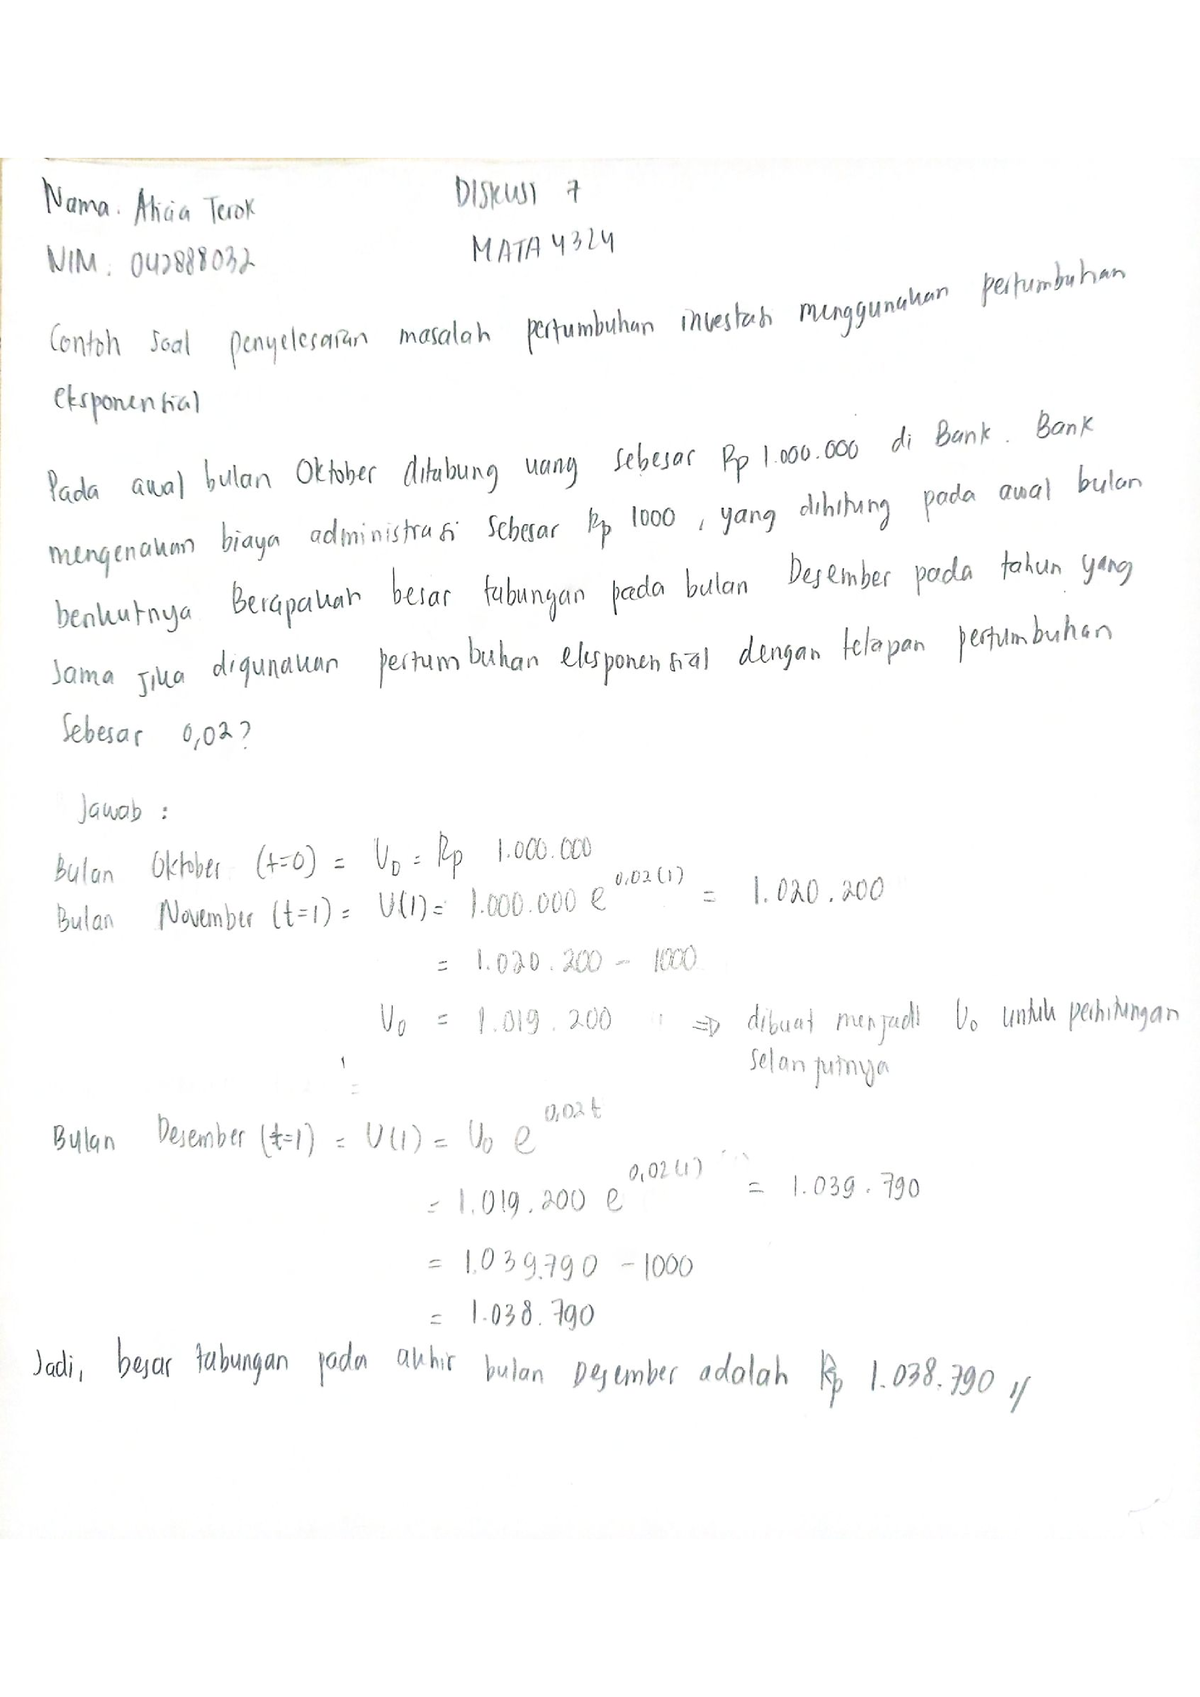 Nama. Alicia Terok
DISKUSI 7
NIM. 042888032
MATA 4324
Contoh Soal penyelesaian masalah pertumbuhan investasi menggunakan pertumbuhan
eksponensial
Pada awal bulan Oktober ditabung uang sebesar Rp 1.000.000 di Bank. Bank
mengenakan biaya administrasi sebesar Rp 1000, yang dihitung pada awal bulan
berikutnya. Berapakah besar tabungan pada bulan Desember pada tahun yang
sama jika digunakan pertumbuhan eksponensial dengan tetapan pertumbuhan
sebesar 0,02?
Jawab :
Bulan Oktober (t=0) = U₀ = Rp 1.000.000
Bulan November (t=1) = U(1) = 1.000.000 e^0,02(1) = 1.020.200
= 1.020.200 - 1000
U₀ = 1.019.200 ⇒ dibuat menjadi U₀ untuk perhitungan
selanjutnya
=
Bulan Desember (t=1) = U(1) = U₀ e^0,02t
= 1.019.200 e^0,02(1) = 1.039.790
= 1.039.790 - 1000
= 1.038.790
Jadi, besar tabungan pada akhir bulan Desember adalah Rp 1.038.790 //